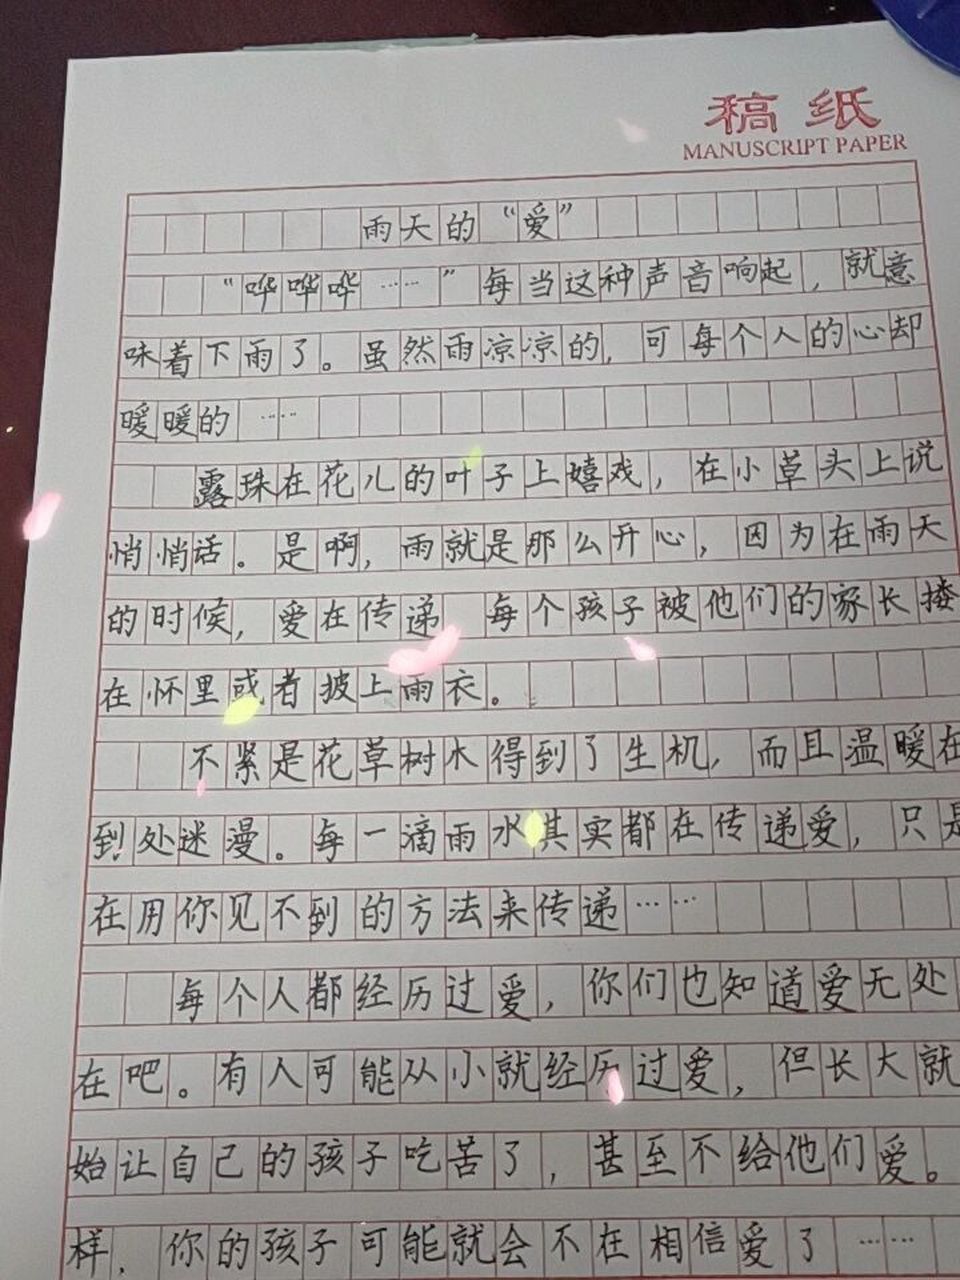 稿纸
MANUSCRIPT PAPER
雨天的“爱”
“哗哗哗……”每当这种声音响起，就意
味着下雨了。虽然雨凉凉的，可每个人的心却
暖暖的……
露珠在花儿的叶子上嬉戏，在小草头上说
悄悄话。是啊，雨就是那么开心，因为在雨天
的时候，爱在传递 每个孩子被他们的家长搂
在怀里或者披上雨衣。
不紧是花草树木得到了生机，而且温暖在
到处迷漫。每一滴雨水其实都在传递爱，只是
在用你见不到的方法来传递……
每个人都经历过爱，你们也知道爱无处
在吧。有人可能从小就经历过爱，但长大就
始让自己的孩子吃苦了，甚至不给他们爱。
样，你的孩子可能就会不在相信爱了……